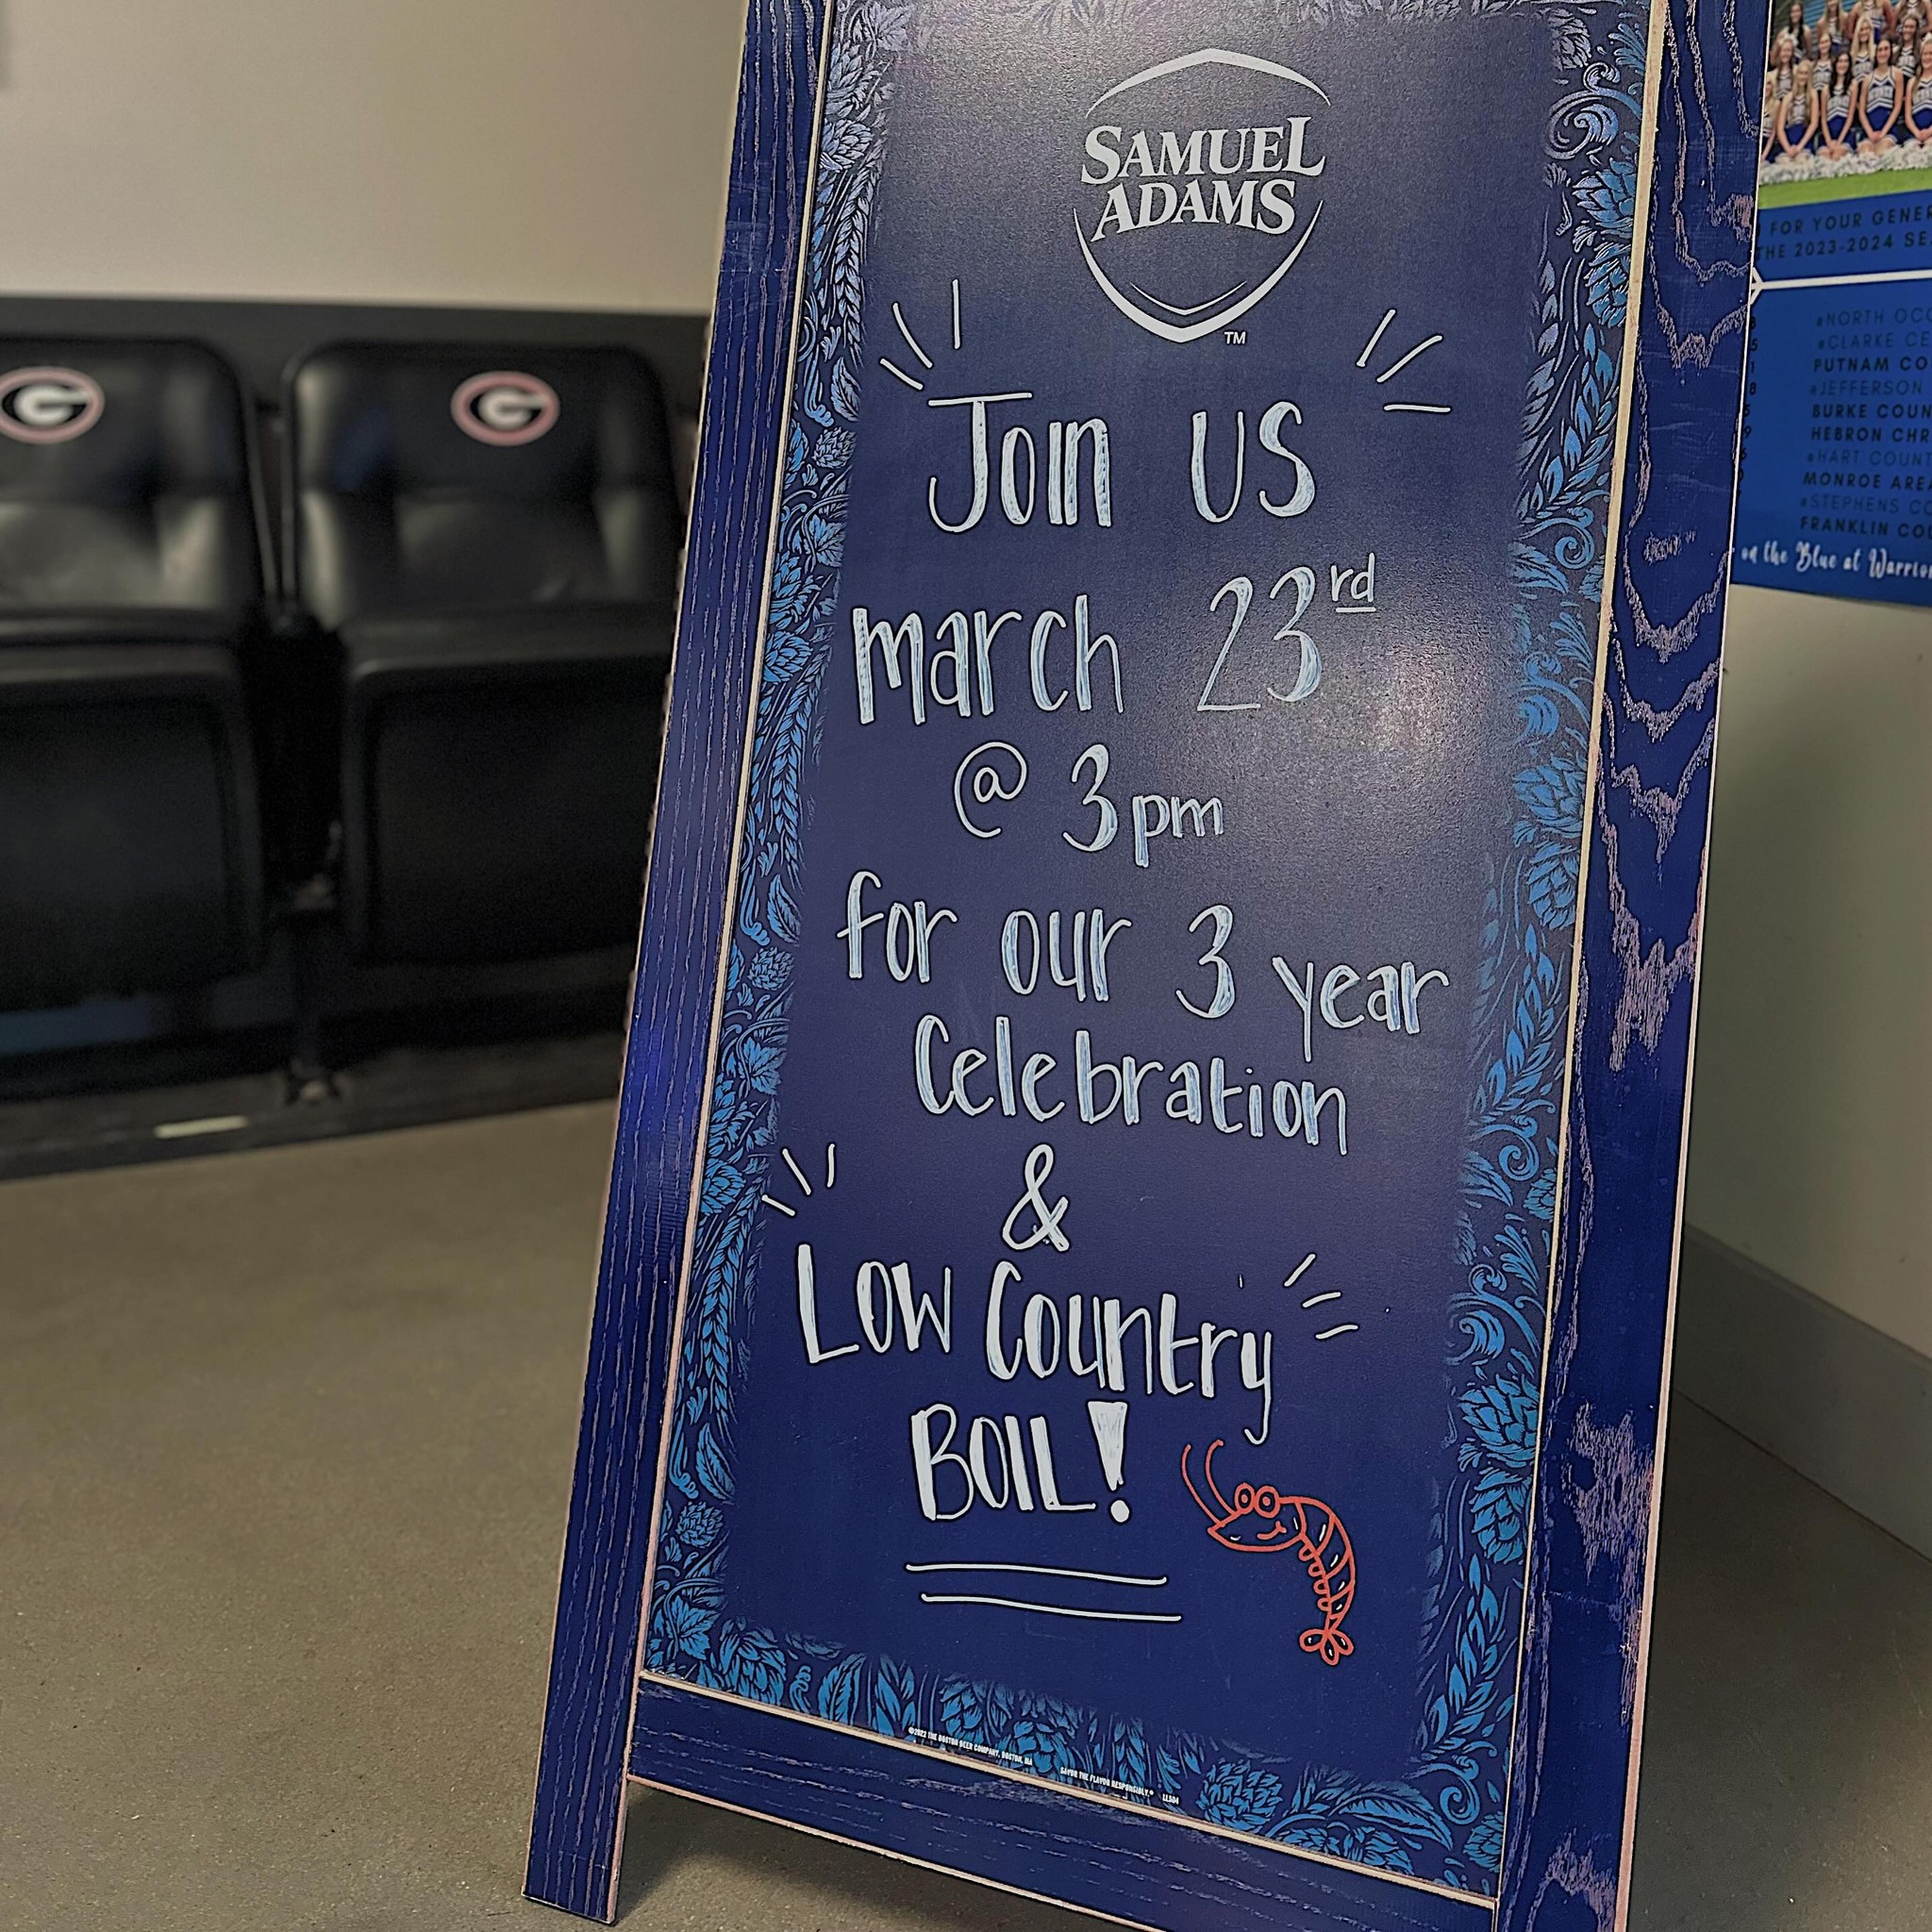 SAMUEL
ADAMS
TM
Join us
march 23rd
@ 3pm
for our 3 year
Celebration
&
Low Country
BOIL!
©2022 THE BOSTON BEER COMPANY, BOSTON, MA
SAVOR THE FLAVOR RESPONSIBLY.®
G
G
FOR YOUR
THE 2023-2024
#NORTH
#CLARKE
PUTNAM
#JEFFERSON
BURKE
HEBRON
#HART
MONROE AREA
#STEPHENS
FRANKLIN
on the Blue at